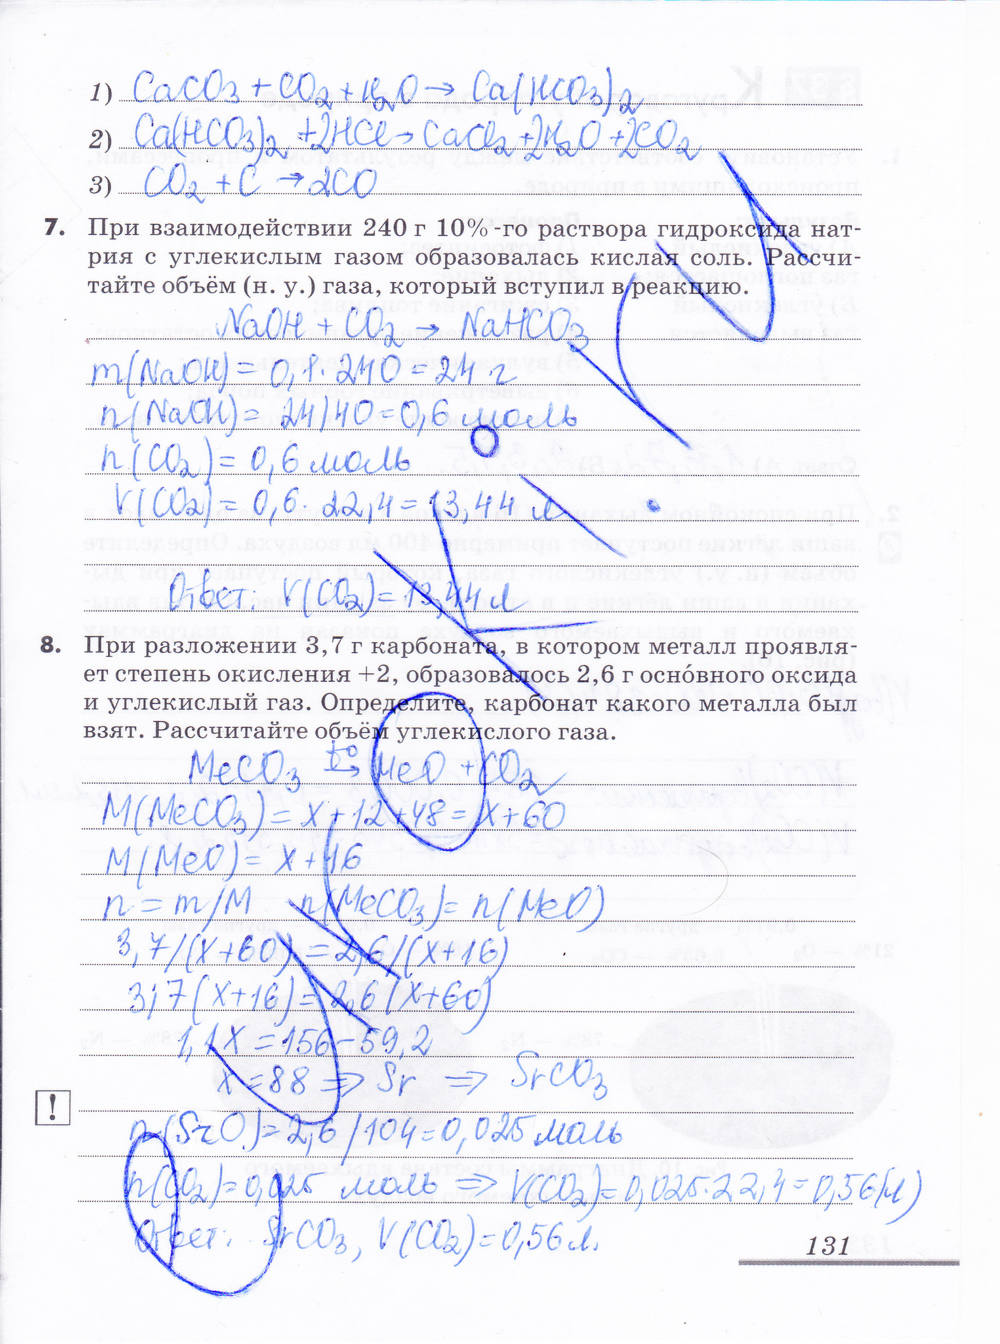 1) CaCO3 + CO2 + H2O → Ca(HCO3)2
2) Ca(HCO3)2 + 2HCl → CaCl2 + 2H2O + 2CO2
3) CO2 + C → 2CO
7. При взаимодействии 240 г 10%-го раствора гидроксида нат-
рия с углекислым газом образовалась кислая соль. Рассчи-
тайте объём (н. у.) газа, который вступил в реакцию.
NaOH + CO2 → NaHCO3
m(NaOH) = 0,1 · 240 = 24 г
n(NaOH) = 24/40 = 0,6 моль
n(CO2) = 0,6 моль
V(CO2) = 0,6 · 22,4 = 13,44 л
Ответ: V(CO2) = 13,44 л
8. При разложении 3,7 г карбоната, в котором металл проявля-
ет степень окисления +2, образовалось 2,6 г оснóвного оксида
и углекислый газ. Определите, карбонат какого металла был
взят. Рассчитайте объём углекислого газа.
MeCO3 t° → MeO + CO2
M(MeCO3) = x + 12 + 48 = x + 60
M(MeO) = x + 16
n = m/M n(MeCO3) = n(MeO)
3,7/(x+60) = 2,6/(x+16)
3,7(x+16) = 2,6(x+60)
1,1x = 156 - 59,2
x = 88 ⇒ Sr ⇒ SrCO3
!
n(SrO) = 2,6/104 = 0,025 моль
n(CO2) = 0,025 моль ⇒ V(CO2) = 0,025·22,4 = 0,56(л)
Ответ: SrCO3, V(CO2) = 0,56 л.
131